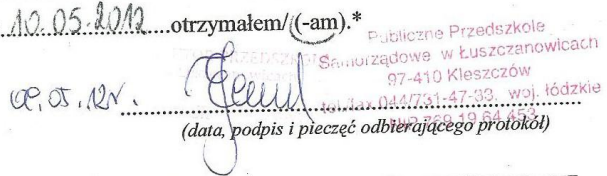 10.05.2012....otrzymałem/(-am).*
Publiczne Przedszkole
Samorządowe w Łuszczanowicach
97-410 Kleszczów
tel./fax 044/731-47-33, woj. łódzkie
NIP 769 19 64 453
05.12r.
(data, podpis i pieczęć odbierającego protokół)